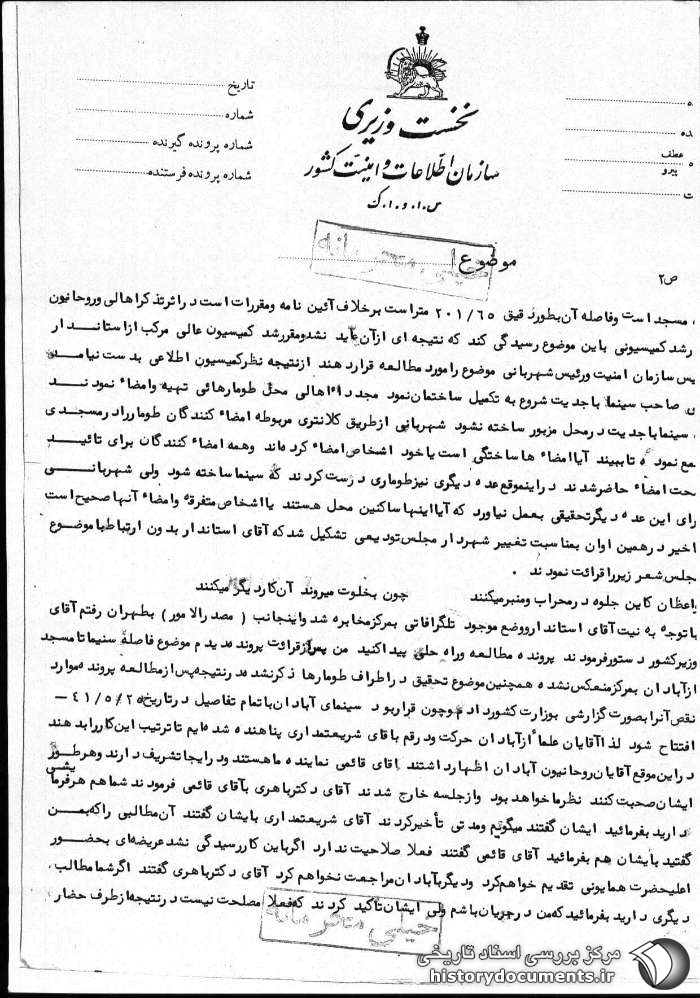 نخست وزیری
سازمان اطلاعات و امنیت کشور
س.ا.و.ا.ک
تاریخ
شماره
شماره پرونده گیرنده
شماره پرونده فرستنده
عطف
پیرو
خیلی محرمانه
موضوع
ص۲
، مسجد است وفاصله آن بطور دقیق ۲۰۱/۶۵ متراست برخلاف آئین نامه ومقررات است در اثر تذکر اهالی وروحانیون
رشد کمیسیونی باین موضوع رسیدگی کند که نتیجه ای ازآن عاید نشد ومقررشد کمیسیون عالی مرکب ازاستاندار
یس سازمان امنیت ورئیس شهربانی موضوع رامورد مطالعه قراردهند ازنتیجه نظرکمیسیون اطلاعی بدست نیامد
صاحب سینما باجدیت شروع به تکمیل ساختمان نمود مجدداً اهالی محل طومارهائی تهیه وامضاء نمودند
، سینما باجدیت درمحل مزبور ساخته نشود شهربانی ازطریق کلانتری مربوطه امضاء کنندگان طومار رادرمسجدی
مع نموده تا ببیند آیا امضاء ها ساختگی است یاخود اشخاص امضاء کرده اند وهمه امضاء کنندگان برای تائید
حت امضاء حاضرشدند دراینموقع عده دیگری نیز طوماری درست کردند که سینما ساخته شود ولی شهربانی
رای این عده دیگرتحقیقی بعمل نیاورد که آیا اینها ساکنین محل هستند یا اشخاص متفرقه وامضاء آنها صحیح است
اخیر درهمین اوان بمناسبت تغییر شهردار مجلس تودیعی تشکیل شد که آقای استاندار بدون ارتباط باموضوع
جلس شعر زیررا قرائت نمودند .
اعظان کاین جلوه درمحراب ومنبرمیکنند چون بخلوت میروند آن کار دیگر میکنند
باتوجه به نیت آقای استاندار ووضع موجود تلگرافاتی بمرکز مخابره شد واینجانب (مصدرالامور) بطهران رفتم آقای
وزیرکشور دستورفرمودند پرونده مطالعه وراه حلی پیدا کنید من پس ازقرائت پرونده دیدم موضوع فاصله سنیما تا مسجد
ازآبادان بمرکز منعکس نشده همچنین موضوع تحقیق در اطراف طومارها ذکرنشده درنتیجه پس ازمطالعه پرونده موارد
نقص آنرا بصورت گزارشی بوزارت کشور دادم وچون قرار بود سینمای آبادان باتمام تفاصیل درتاریخ ۴۱/۵/۲۵ –
افتتاح شود لذا آقایان علماء ازآبادان حرکت ودرقم باقای شریعتمداری پناهنده شده ایم تا ترتیب این کاررا بدهند
دراین موقع آقایان روحانیون آبادان اظهارداشتند آقای قائمی نماینده ما هستند ودراینجا تشریف دارند وهرطور
ایشان صحبت کنند نظرما خواهد بود وازجلسه خارج شدند آقای دکترباهری بآقای قائمی فرمودند شما هم هرفرمایشی
دارید بفرمائید ایشان گفتند میگویم ومدتی تأخیرکردند آقای شریعتمداری بایشان گفتند آن مطالبی راکه بمن
گفتید بایشان هم بفرمائید آقای قائمی گفتند فعلا صلاحیت ندارد اگرباین کار رسیدگی نشد عریضه ای بحضور
اعلیحضرت همایونی تقدیم خواهم کرد ودیگر بآبادان مراجعت نخواهم کرد آقای دکترباهری گفتند اگرشما مطالب
دیگری دارید بفرمائید که من درجریان باشم ولی ایشان تأکید کردند که فعلا مصلحت نیست درنتیجه ازطرف حضار
خیلی محرمانه
مرکز بررسی اسناد تاریخی
historydocuments.ir